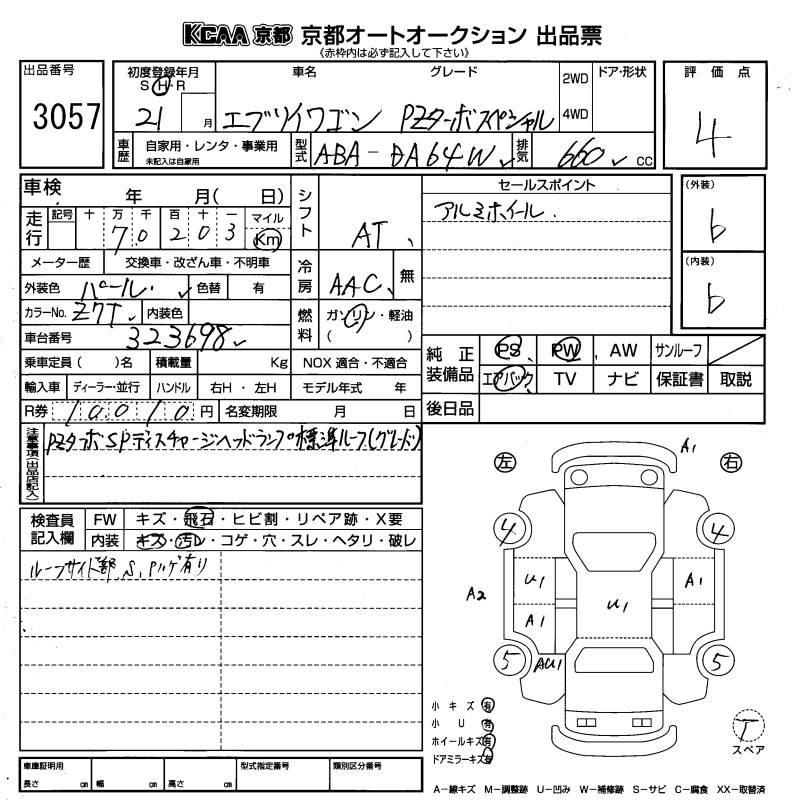 KCAA 京都 京都オートオークション 出品票
(赤枠内は必ず記入して下さい)
出品番号
3057
初度登録年月
S・H・R
21 月
車名 グレード
エブリイワゴン PZターボスペシャル
2WD
4WD
ドア・形状
評価点
4
車歴
自家用・レンタ・事業用
未記入は自家用
型式
ABA-DA64W
排気
660 cc
車検 年 月( 日)
シフト
AT
セールスポイント
アルミホイール
(外装)
b
(内装)
b
走行
記号 十 万 千 百 十 一 マイル
7 0 2 0 3 Km
メーター歴 交換車・改ざん車・不明車
冷房
AAC 無
外装色 パール 色替 有
カラーNo. Z7T 内装色
燃料
ガソリン・軽油
( )
車台番号 323698
純正装備品
PS PW AW サンルーフ
エアバック TV ナビ 保証書 取説
乗車定員( )名 積載量 Kg NOX 適合・不適合
輸入車 ディーラー・並行 ハンドル 右H・左H モデル年式 年
後日品
R券 10,010 円 名変期限 月 日
注意事項(出品店記入)
PZターボSPディスチャージヘッドランプ標準ルーフ(グレード)
検査員記入欄
FW キズ・飛石・ヒビ割・リペア跡・X要
内装 キズ・汚レ・コゲ・穴・スレ・ヘタリ・破レ
ルーフサイド部、S、Pハゲ有り
左 右
A1
4 4
U1 A1
A2 U1
A1
5 AU1 5
小キズ 有
小U 有
ホイールキズ 有
ドアミラーキズ 有
T
スペア
車庫証明用 型式指定番号 類別区分番号
長さ cm 幅 cm 高さ cm
A-線キズ M-調整跡 U-凹み W-補修跡 S-サビ C-腐食 XX-取替済